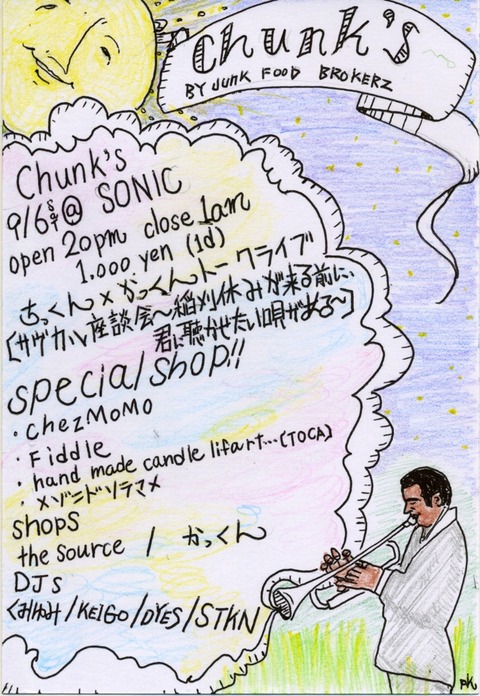 Chunk's
BY JUNK FOOD BROKERZ
Chunk's
9/6 sat @ SONIC
open 20pm close 1am
1.000 yen (1d)
さっくん×かっくんトークライブ
[サヴカル座談会〜稲刈休みが来る前に、
君に聴かせたい唄がある〜]
special shop!!
・chez MoMo
・Fiddle
・hand made candle lifart...(TOCA)
・メゾニドソラマメ
shops
the source / かっくん
DJs
くみゆみ/KEIGO/DYES/STKN
PK